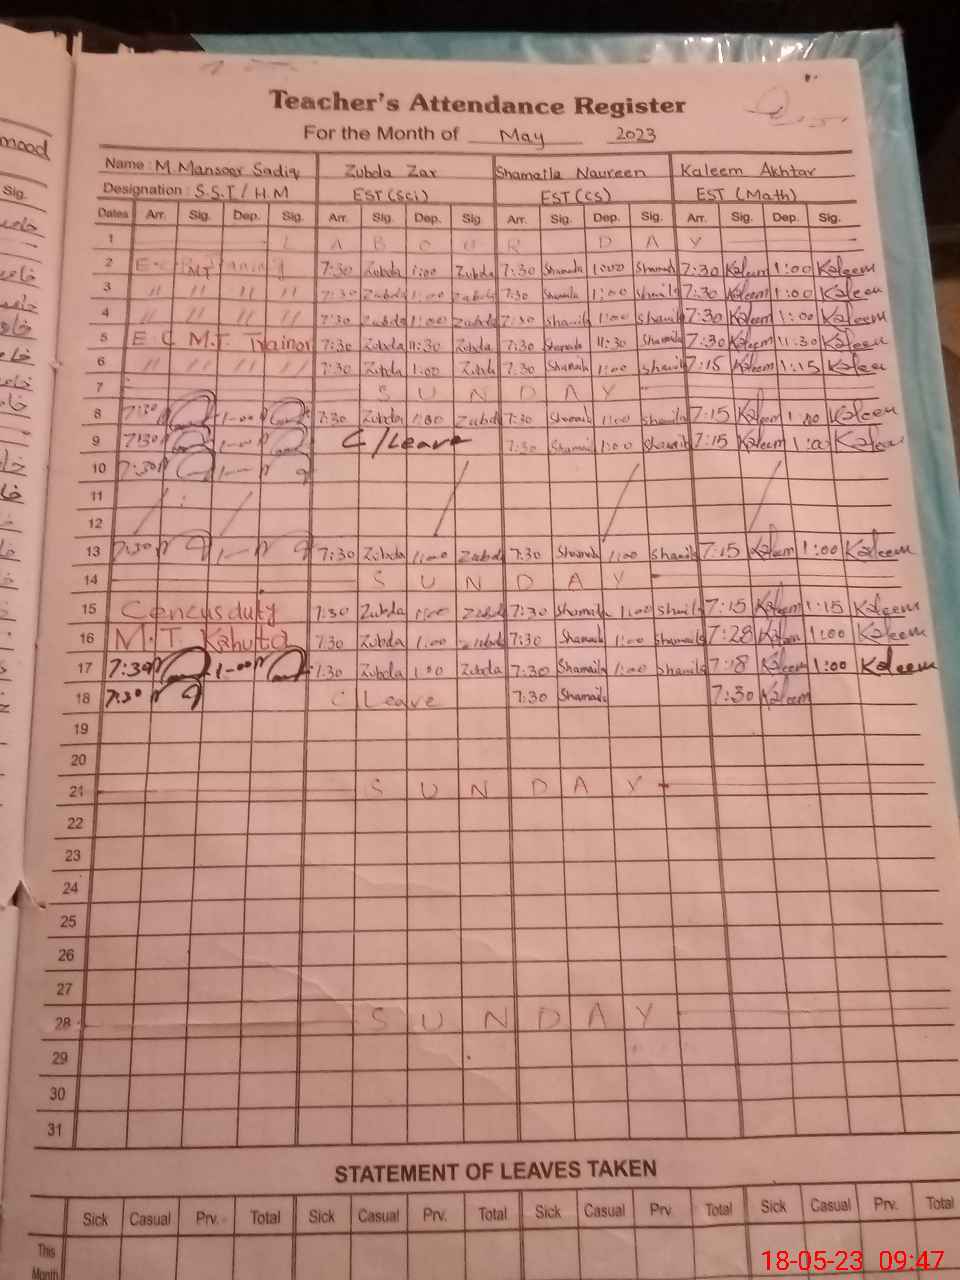 Teacher's Attendance Register
For the Month of May 2023
mood
Name : M. Mansoor Sadiq Zubda Zar Shamaila Naureen Kaleem Akhtar
Designation : S.S.T / H.M EST (Sci) EST (CS) EST (Math)
Sig. Dates Arr. Sig. Dep. Sig. Arr. Sig. Dep. Sig. Arr. Sig. Dep. Sig. Arr. Sig. Dep. Sig.
1 L A B O U R D A Y
2 7:30 Zubda 1:00 Zubda 7:30 Shamaila 1:00 Shamaila 7:30 Kaleem 1:00 Kaleem
3 " " " " 7:30 Zubda 1:00 Zubda 7:30 Shamaila 1:00 Shamaila 7:30 Kaleem 1:00 Kaleem
4 " " " " 7:30 Zubda 1:00 Zubda 7:30 Shamaila 1:00 Shamaila 7:30 Kaleem 1:00 Kaleem
5 E C M.T. Trainor 7:30 Zubda 11:30 Zubda 7:30 Shamaila 11:30 Shamaila 7:30 Kaleem 11:30 Kaleem
6 " " " " 7:30 Zubda 1:00 Zubda 7:30 Shamaila 1:00 Shamaila 7:15 Kaleem 1:15 Kaleem
7 S U N D A Y
8 7:30 1-00 7:30 Zubda 1:00 Zubda 7:30 Shamaila 1:00 Shamaila 7:15 Kaleem 1:00 Kaleem
9 7:30 1-00 C/Leave 7:30 Shamaila 1:00 Shamaila 7:15 Kaleem 1:00 Kaleem
10 7:30
11
12
13 7:30 7:30 Zubda 1:00 Zubda 7:30 Shamaila 1:00 Shamaila 7:15 Kaleem 1:00 Kaleem
14 S U N D A Y
15 Cencus duty 7:30 Zubda 1:00 Zubda 7:30 Shamaila 1:00 Shamaila 7:15 Kaleem 1:15 Kaleem
16 M.T. Kahuta 7:30 Zubda 1:00 Zubda 7:30 Shamaila 1:00 Shamaila 7:28 Kaleem 1:00 Kaleem
17 7:30 1-00 7:30 Zubda 1:00 Zubda 7:30 Shamaila 1:00 Shamaila 7:18 Kaleem 1:00 Kaleem
18 7:30 C Leave 7:30 Shamaila 7:30 Kaleem
19
20
21 S U N D A Y
22
23
24
25
26
27
28 S U N D A Y
29
30
31
STATEMENT OF LEAVES TAKEN
Sick Casual Prv. Total Sick Casual Prv. Total Sick Casual Prv. Total Sick Casual Prv. Total
This
Month
18-05-23 09:47